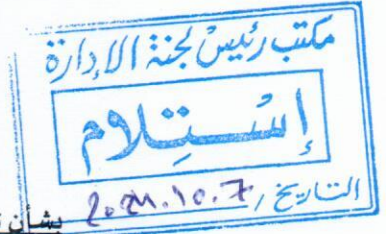 مكتب رئيس لجنة الإدارة
إستلام
التاريخ
بشأن